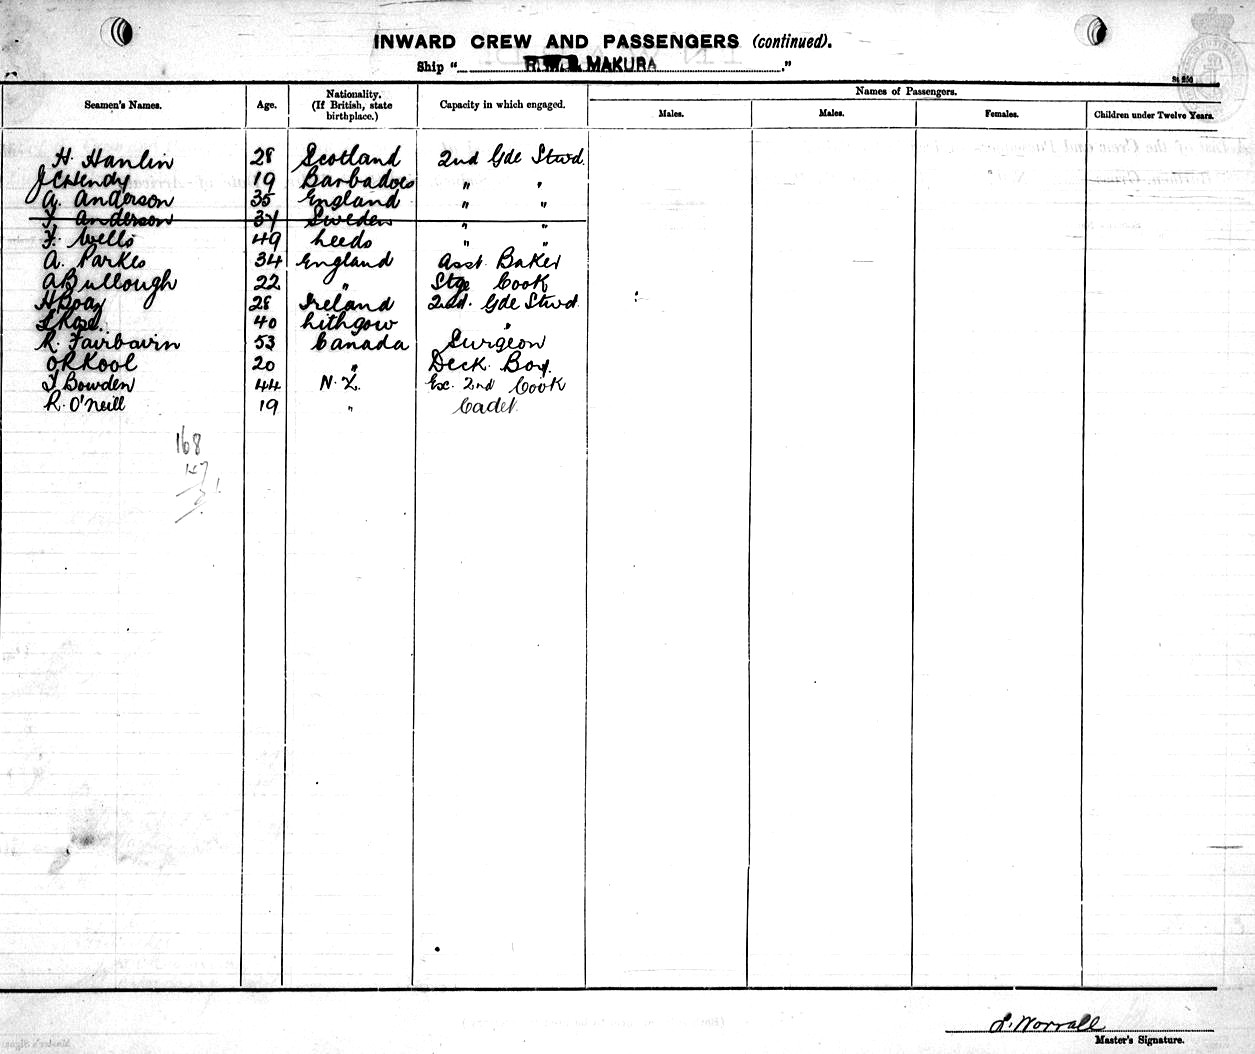 INWARD CREW AND PASSENGERS (continued).
Ship " R.M.S. MAKURA "
Names of Passengers.
Seamen's Names. Age. Nationality. (If British, state birthplace.) Capacity in which engaged. Males. Males. Females. Children under Twelve Years.
H. Hanlin 28 Scotland 2nd Gde Stwd.
J C Hendy 19 Barbadoes " "
A. Anderson 35 England " "
Anderson 34 Sweden " "
F. Wells 49 Leeds " "
A. Parkes 34 England Asst. Baker
A Bullough 22 " Stge Cook
H Boag 28 Ireland 2nd. Gde Stwd.
40 Lithgow "
R. Fairbairn 53 Canada Surgeon
O R Kool 20 " Deck Boy.
T Bowden 44 N.Z. Ex. 2nd Cook
R. O'Neill 19 " Cadet
168
L. Worrall
Master's Signature.